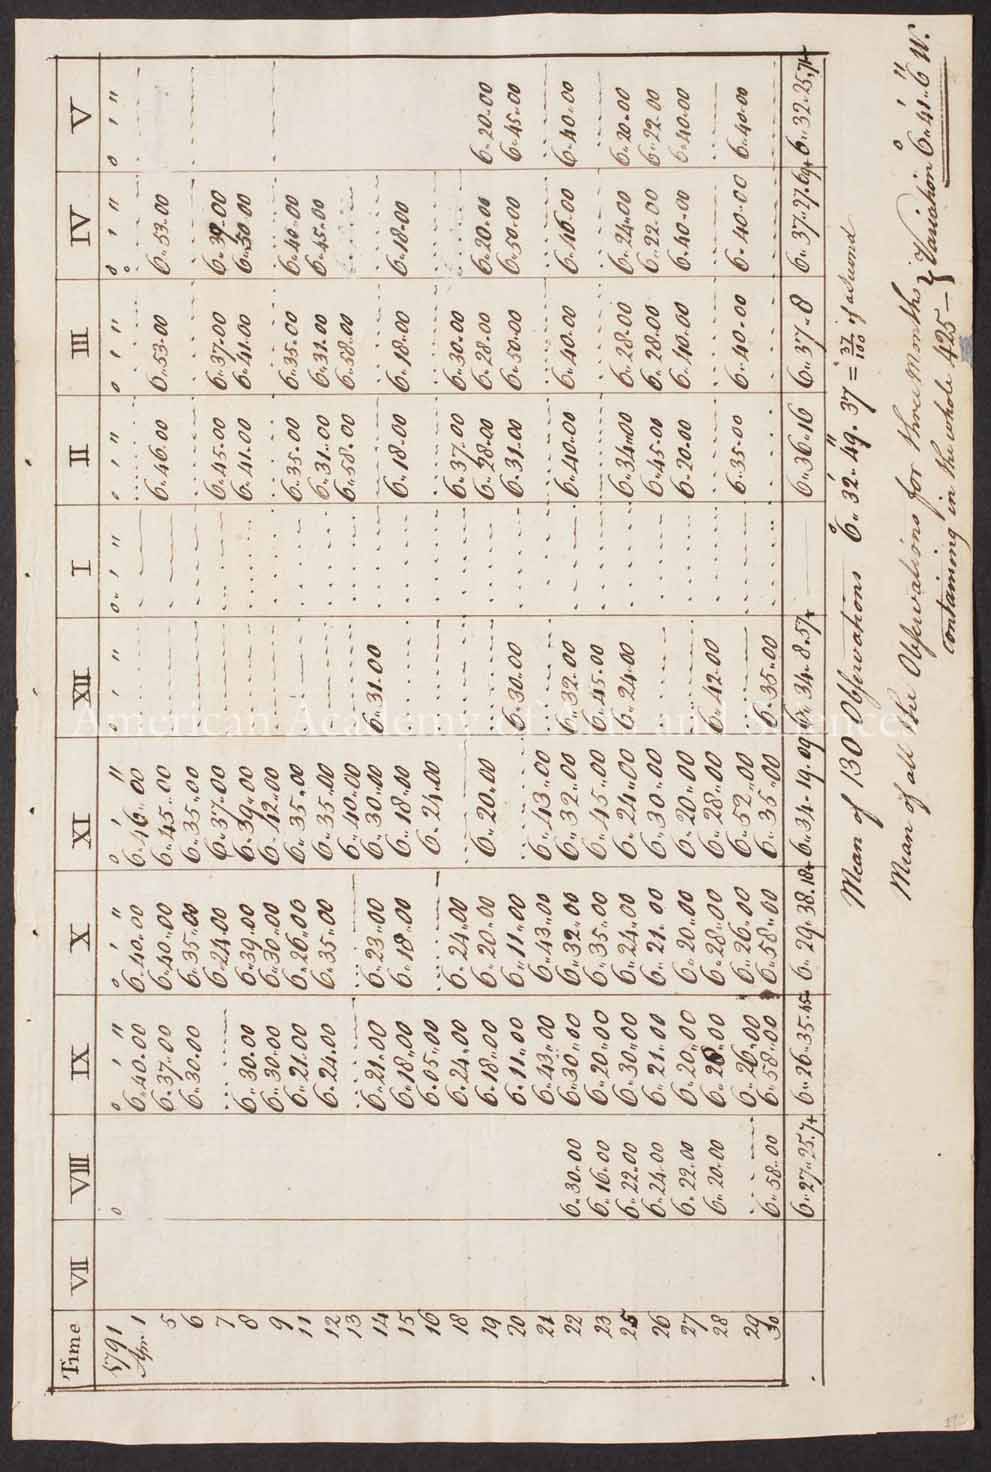 Time VII VIII IX X XI XII I II III IV V
1791
Apr. 1 6..40.00 6..40.00 6..46..00
5 6..37.00 6..40.00 6..45..00 6..46.00 6..53.00 6..53.00
6 6..30.00 6..35.00 6..35..00
7 6..24.00 6..37.00 6..45.00 6..37.00
8 6..30.00 6..39.00 6..39.00 6..41.00 6..41.00 6..30.00
9 6..30.00 6..30.00 6..42.00
11 6..21.00 6..26.00 6..35.00 6..35.00 6..35.00 6..40.00
12 6..24.00 6..35.00 6..35.00 6..31.00 6..31.00 6..45.00
13 6..40.00 6..58.00 6..58.00
14 6..21.00 6..23.00 6..30.00 6..31.00
15 6..18.00 6..18.00 6..18.00 6..18.00 6..18.00 6..18.00
16 6..05.00 6..24.00
18 6..24.00 6..24.00 6..37.00 6..30.00
19 6..18.00 6..20.00 6..20.00 6..28.00 6..28.00 6..20.00 6..20.00
20 6..11.00 6..11.00 6..30.00 6..31.00 6..50.00 6..50.00 6..45.00
21 6..43.00 6..43.00 6..43.00
22 6..30.00 6..30.00 6..32.00 6..32.00 6..32.00 6..40.00 6..40.00 6..46.00 6..40.00
23 6..16.00 6..20.00 6..35.00 6..45.00 6..45.00
25 6..22.00 6..30.00 6..24.00 6..24.00 6..24.00 6..34.00 6..28.00 6..24.00 6..20.00
26 6..24.00 6..21.00 6..21.00 6..30.00 6..45.00 6..28.00 6..22.00 6..22.00
27 6..22.00 6..20.00 6..20.00 6..20.00 6..20.00 6..40.00 6..40.00 6..40.00
28 6..20.00 6..28.00 6..28.00 6..28.00 6..42.00
29 6..26.00 6..26.00 6..52.00 6..35.00 6..40.00 6..40.00 6..40.00
30 6..58.00 6..58.00 6..58.00 6..35.00 6..35.00
6..27..25.7+ 6..26..35.45 6..29..38.18+ 6..34..19.09 6..34..8.57+ 6..36..16 6..37..8 6..37.27.69+ 6..32.25.71+
Mean of 130 Observations 6°..32'..49".37 = 37/100 of a second
Mean of all the Observations for three Months
containing in the whole 425 — } Variation 6°..41'..6" W.
American Academy of Arts and Sciences